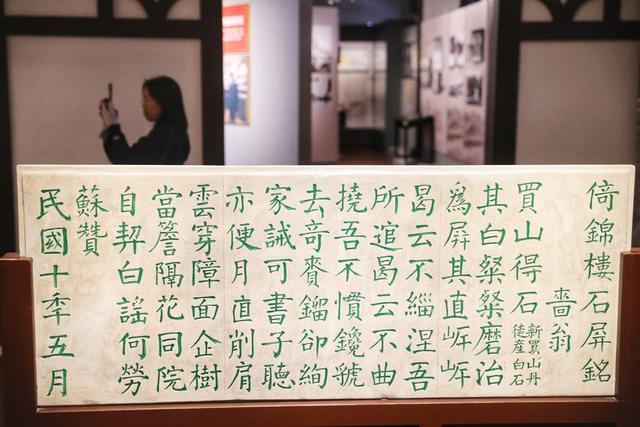 倚錦樓石屏銘
嗇翁
買山得石新買山丹徒産白石
其白粲粲磨治
爲屏其直
曷云不緇涅吾
所逭曷云不曲
撓吾不慣鑱號
去竒賚鎦卻絢
家誡可書子聽
亦便月直削肩
雲穿障面企樹
當簷隔花同院
自契白謡何勞
蘇贊
民國十秊五月